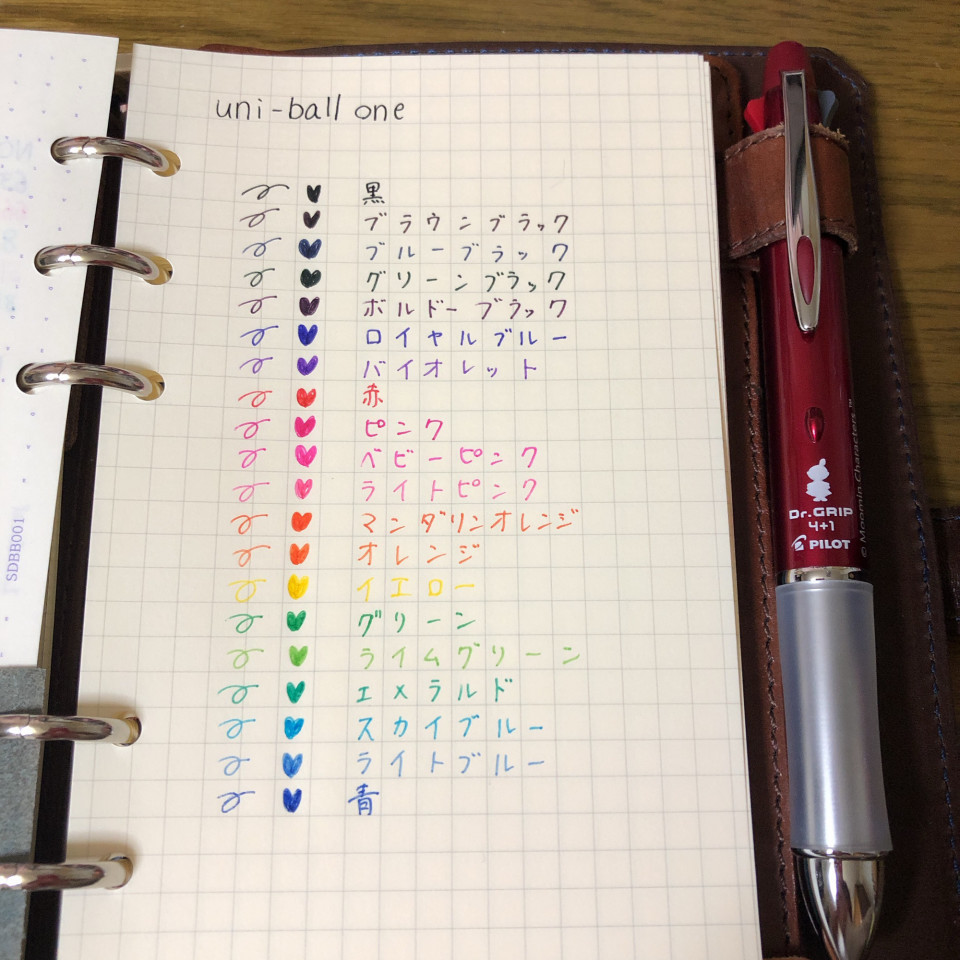 uni-ball one
黒
ブラウンブラック
ブルーブラック
グリーンブラック
ボルドーブラック
ロイヤルブルー
バイオレット
赤
ピンク
ベビーピンク
ライトピンク
マンダリンオレンジ
オレンジ
イエロー
グリーン
ライムグリーン
エメラルド
スカイブルー
ライトブルー
青
SDBB001
Dr.GRIP
4+1
PILOT
© Moomin Characters™